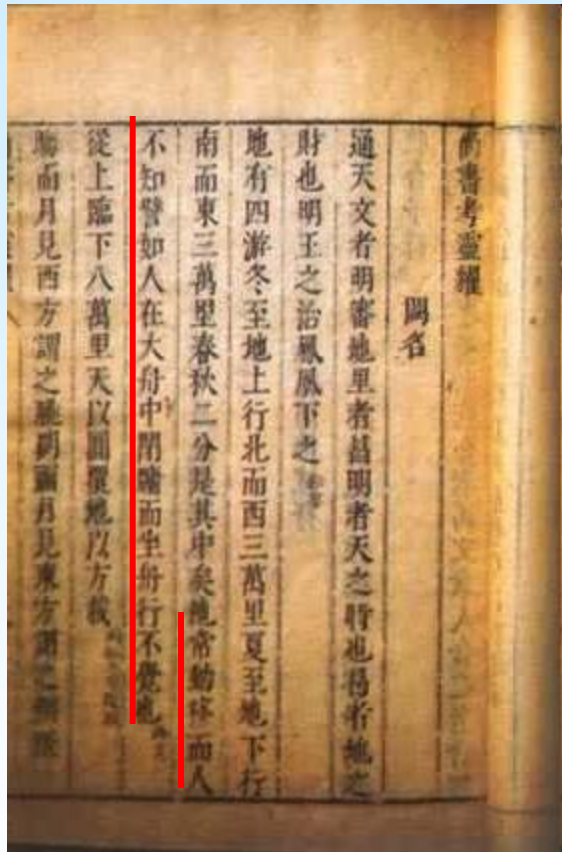 尚書考靈耀
闕名
通天文者明審地里者昌明者天之時也昌者地之
財也明王之治鳳凰下之
地有四游冬至地上行北而西三萬里夏至地下行
南而東三萬里春秋二分是其中矣地常動移而人
不知譬如人在大舟中閉牖而坐舟行不覺也
從上臨下八萬里天以圓覆地以方載
晦而月見西方謂之朓朔而月見東方謂之